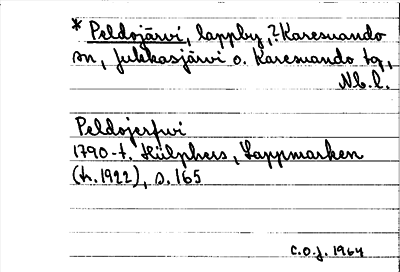 * Peldojärvi, lappby, ? Karesuando
sn, Jukkasjärvi o. Karesuando tg,
Nb. l.
Peldojerfwi
1790-t. Hülphers, Lappmarken
(tr. 1922), s. 165
C.O.J. 1964